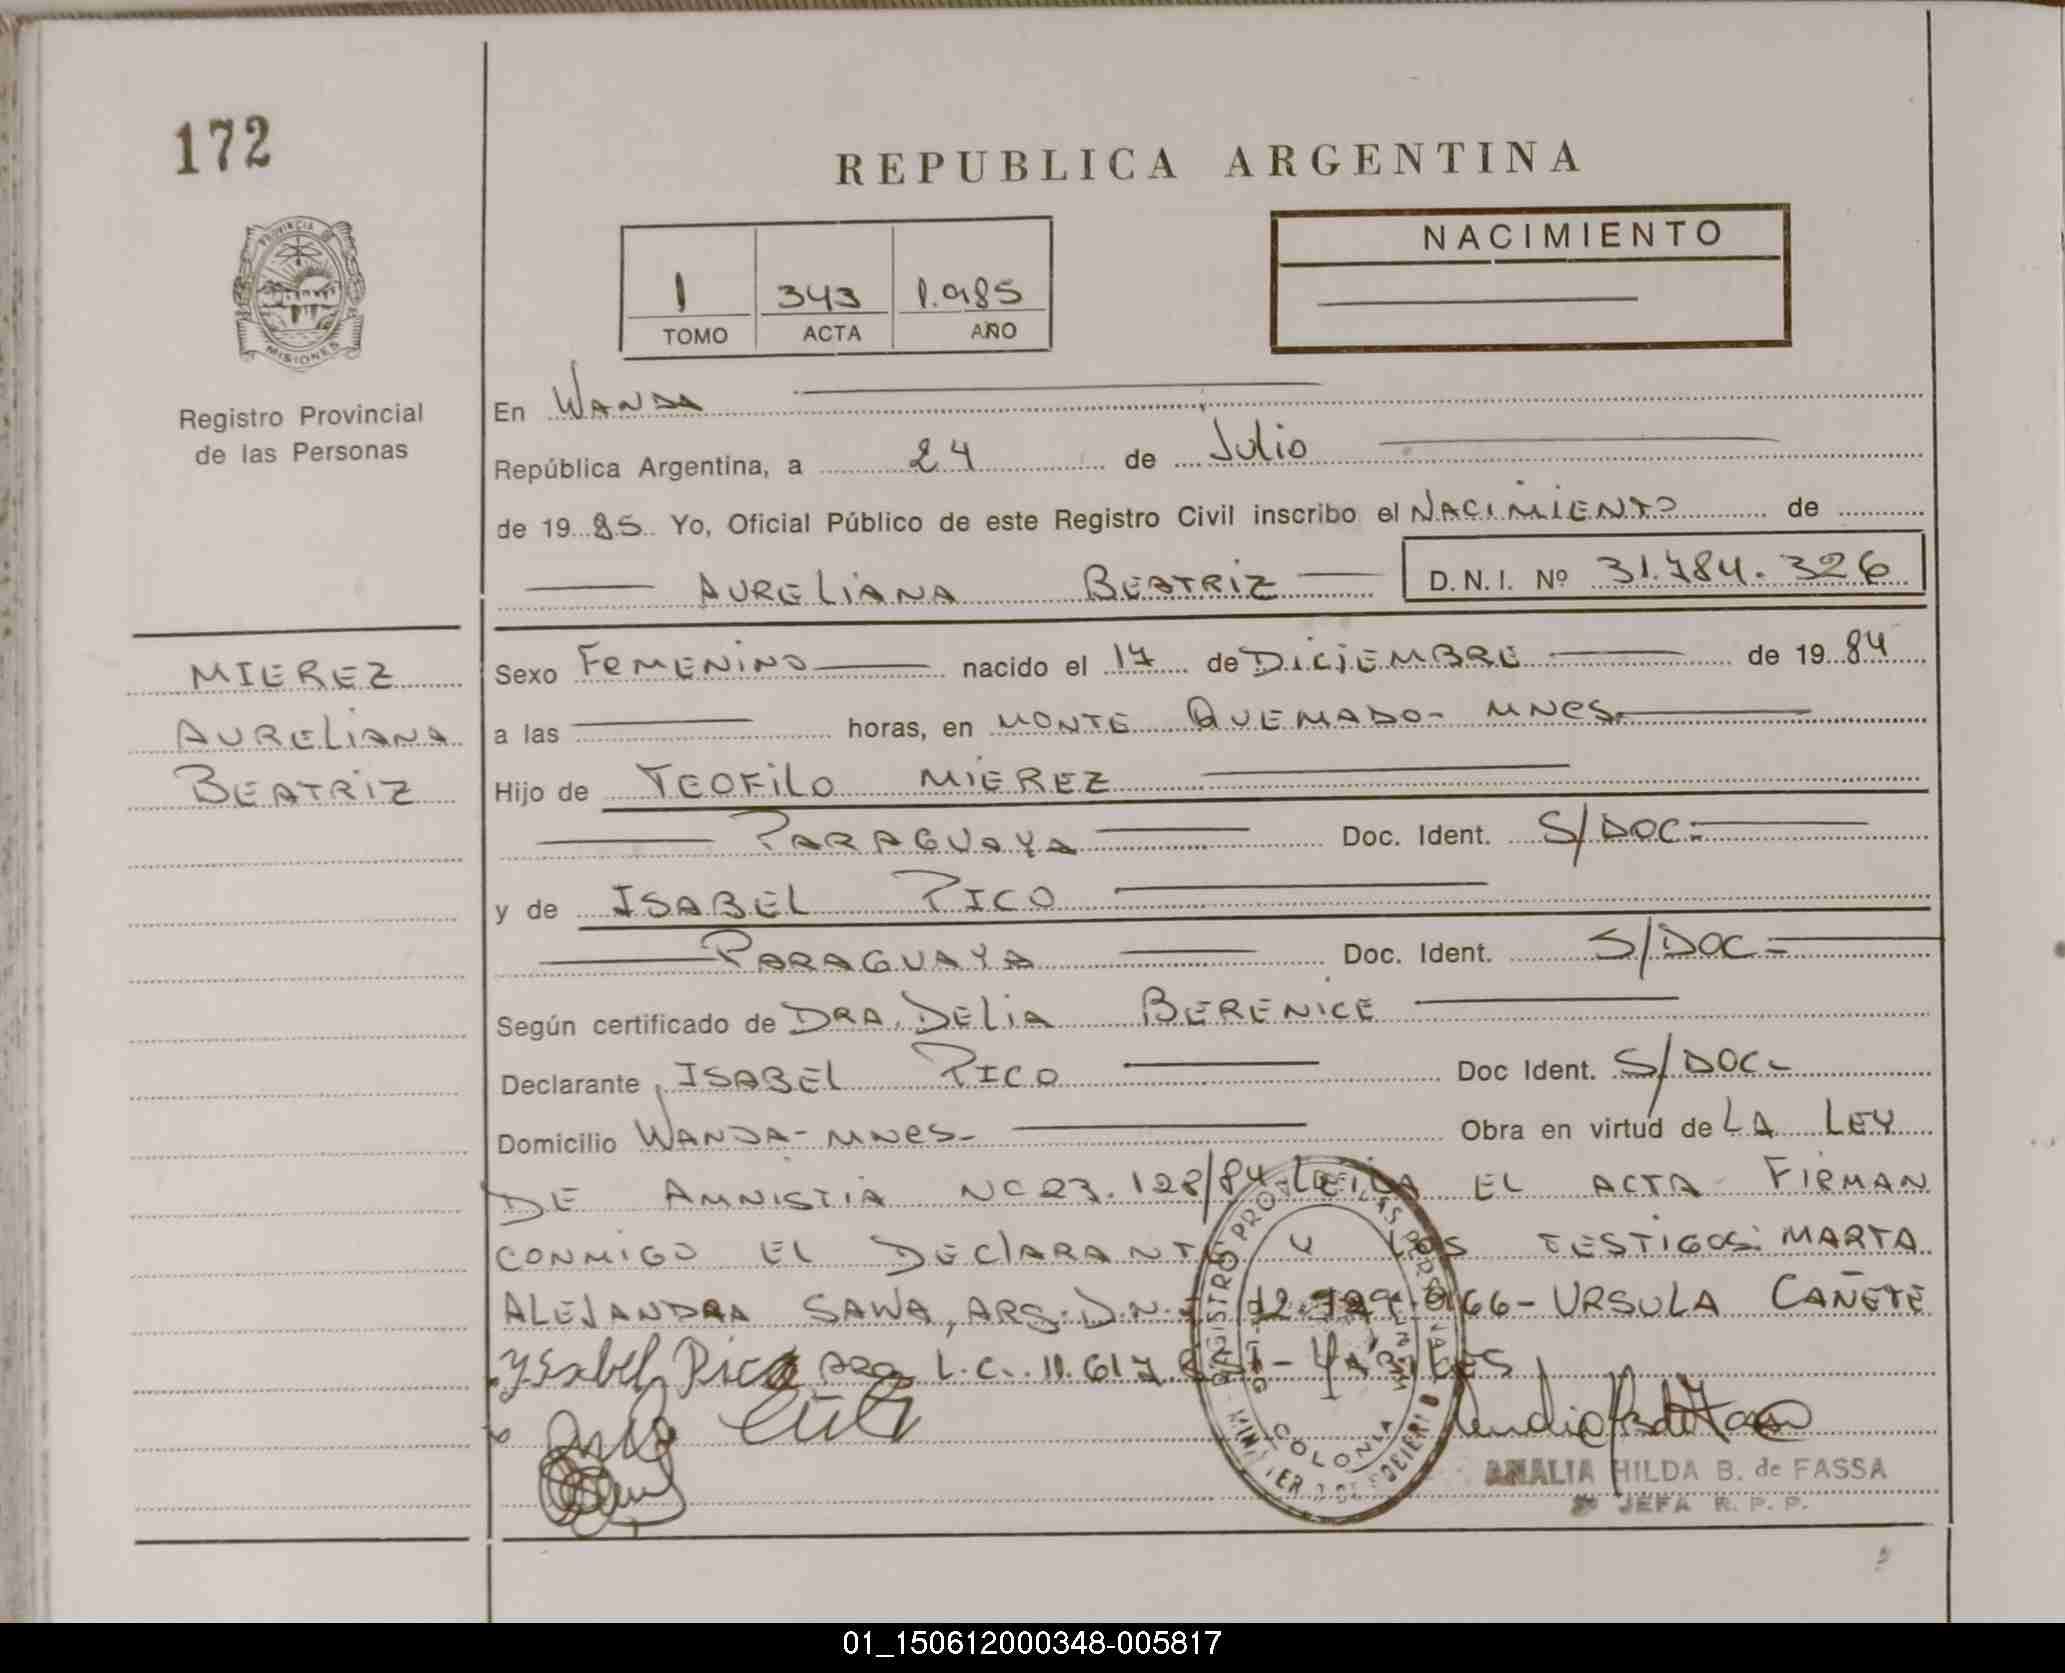 172
REPUBLICA ARGENTINA
NACIMIENTO
1 343 1.985
TOMO ACTA AÑO
PROVINCIA DE
MISIONES
Registro Provincial
de las Personas
En WANDA
República Argentina, a 24 de Julio
de 1985 Yo, Oficial Público de este Registro Civil inscribo el NACIMIENTO de
AURELIANA BEATRIZ D.N.I. Nº 31.784.326
MIEREZ
AURELIANA
BEATRIZ
Sexo FEMENINO nacido el 17 de DICIEMBRE de 1984
a las horas, en MONTE QUEMADO- MNES.
Hijo de TEOFILO MIEREZ
PARAGUAYA Doc. Ident. S/DOC-
y de ISABEL PICO
PARAGUAYA Doc. Ident. S/DOC-
Según certificado de DRA. DELIA BERENICE
Declarante ISABEL PICO Doc Ident. S/DOC-
Domicilio WANDA-MNES- Obra en virtud de LA LEY
DE AMNISTIA Nº 23.128/84 LEIDA EL ACTA FIRMAN
CONMIGO EL DECLARANTE Y LOS TESTIGOS: MARTA
ALEJANDRA SAWA, ARG. D.N.I. 166- URSULA CAÑETE
Ysabel Pico ARG L.C. 11.617
COLONIA
AMALIA HILDA B. de FASSA
JEFA R. P. P.
01_150612000348-005817